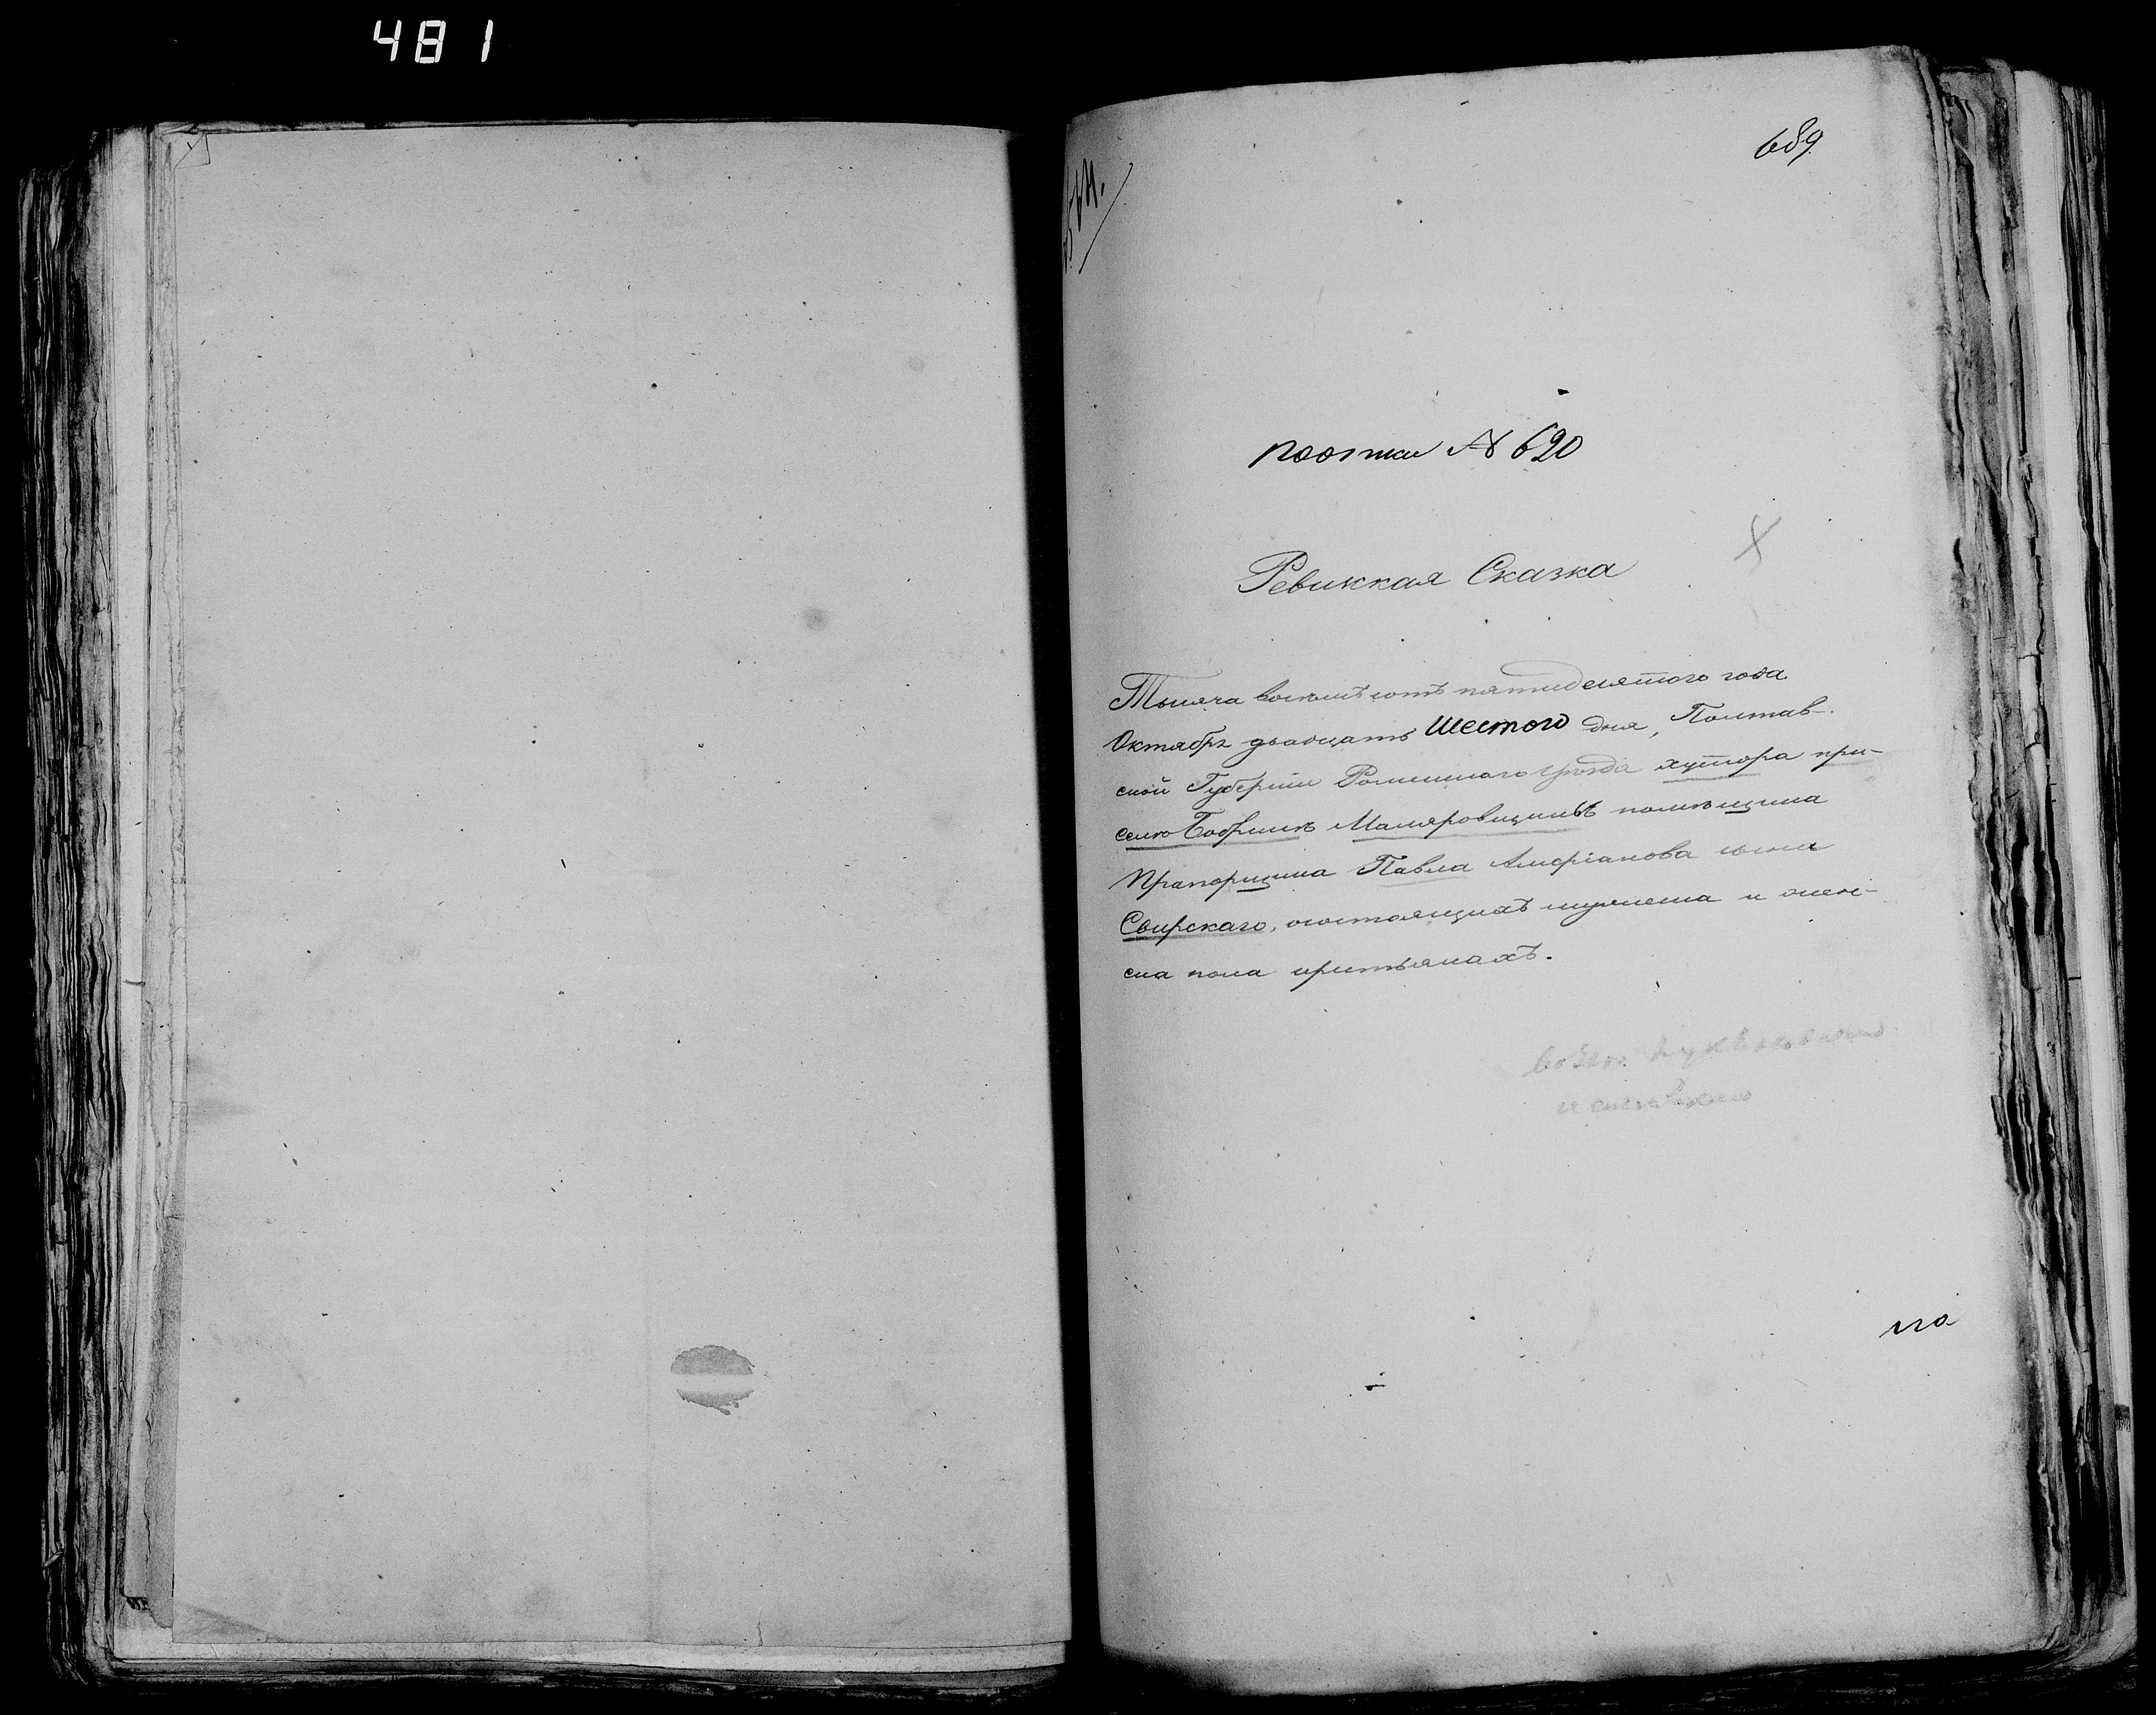 481
689
по описи № 690
Ревижская Сказка
Тысяча восемьсотъ пятидесятого года
Октября двадцать Шестого дня, Полтав-
ской Губерніи Роменского уѣзда хутора при
селѣ Бобрикѣ Маляровщинѣ помѣщика
Прапорщика Павла Амфіанова сына
Свирскаго, состоящихъ мужеска и жен-
ска пола крестьянахъ.
и